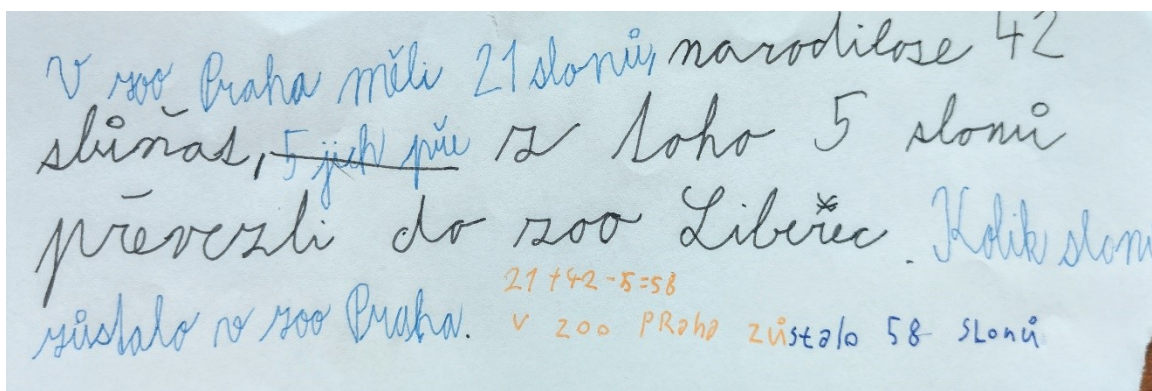 V zoo Praha měli 21 slonů, narodilose 42
slůňat, 5 jich pře z toho 5 slonů
převezli do zoo Liberec. Kolik slonů
zůstalo v zoo Praha.
21+42-5=58
v zoo PRaha zůstalo 58 sLonů